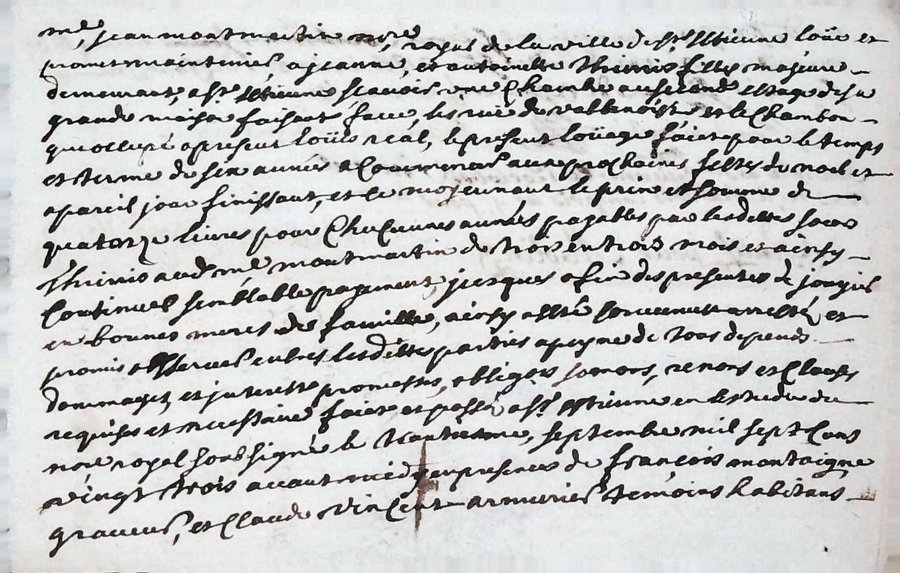 me jean montmartin nore royal de la ville de st estienne loüe et
promet maintenir, a jeanne, et antoinette thirinis filles majeure
demeurant, a st estienne scavoir une chambre au second estage de sa
grande maison faisant face, les rue de valbenoiste et le chambon
qu'occupe a present loüis real, le present loüage faict pour le temps
et terme de six années a commencer aux prochaines festes de noel et
a pareil jour finissant, et ce moyennant le prix et somme de
quatorze livres pour chacunes années payables par lesdittes soeurs
thirinis aud me montmartin de trois en trois mois et ainsy
continuer semblable payement jusques a fin des presentes de jouyir
en bonnes meres de famille, ainsy a esté convenu arresté et
promis observer entres lesdittes parties a peyne de tous depends
dommages, et interetts promesses, obligons soumons, renons et clauses
requises et necessaire faict et passé a st estienne en l'estude du
nore royal soubsigné le trantiesme, septembre mil sept cens
vingt trois avant midy en presences de françois montaigne
graveur, et claude vincent armurier temoins habitans